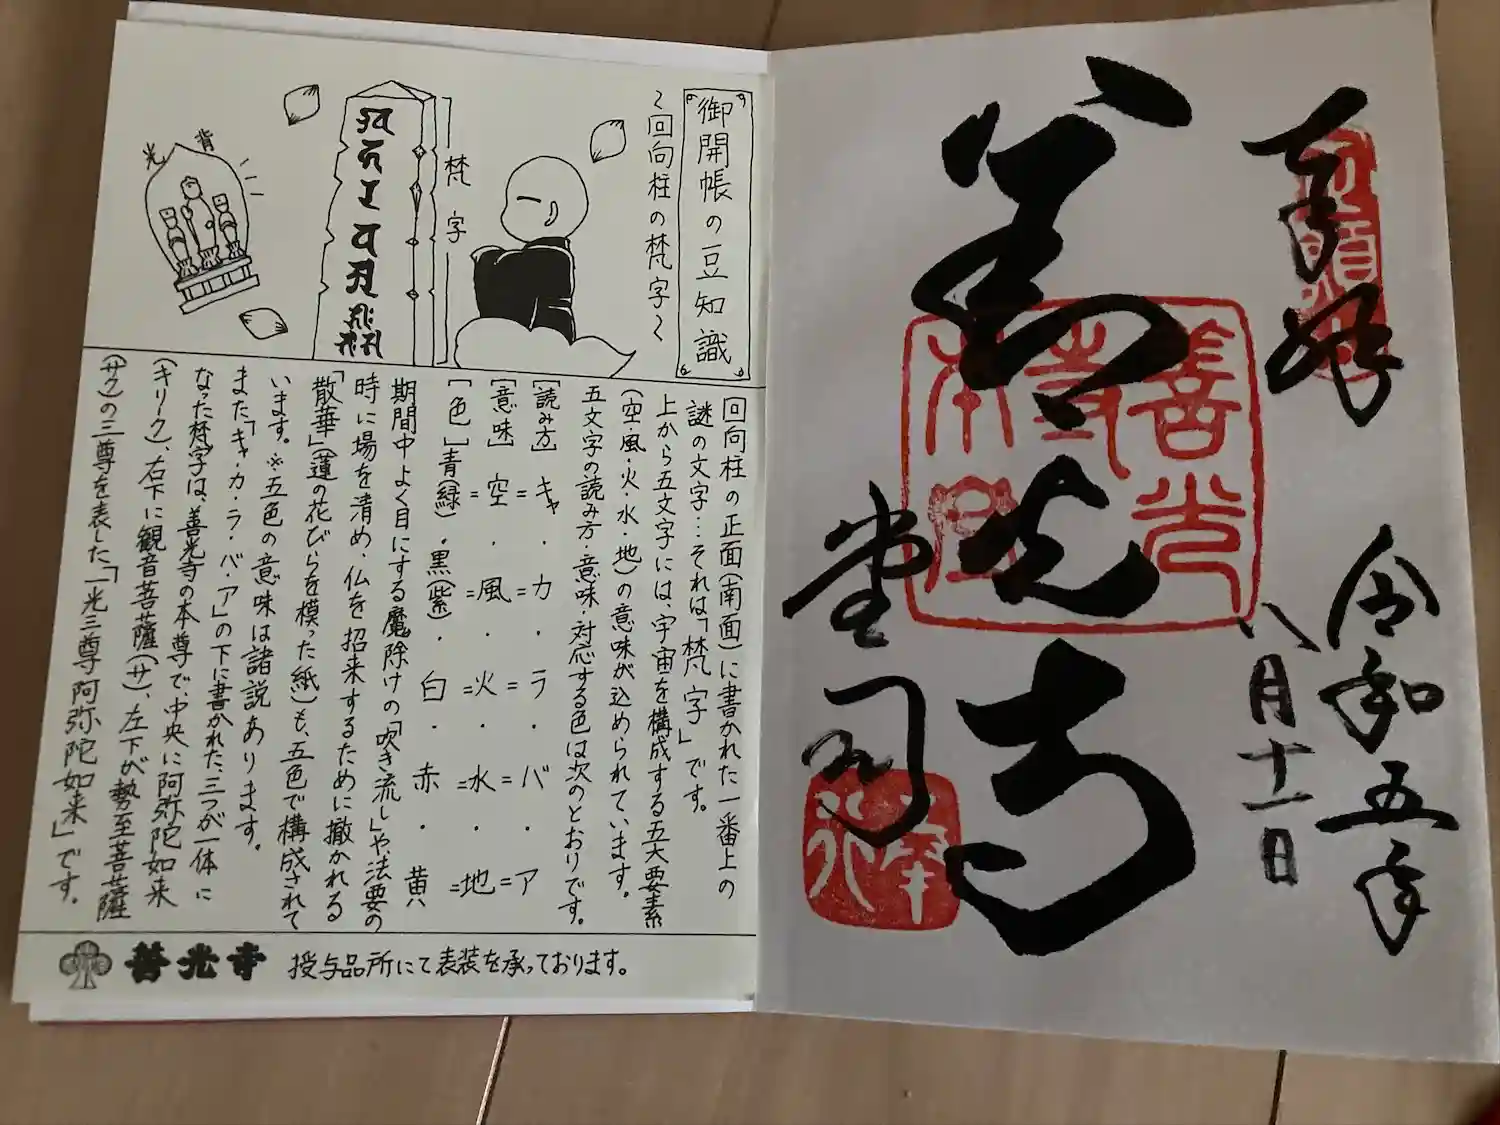 奉拝
令和五年
八月十一日
善光寺
堂司
善光
寺
本
御開帳の豆知識
～回向柱の梵字～
梵字
背
光
回向柱の正面(南面)に書かれた一番上の
謎の文字…それは「梵字」です。
上から五文字には、宇宙を構成する五大要素
(空・風・火・水・地)の意味が込められています。
五文字の読み方・意味・対応する色は次のとおりです。
[読み方] キャ・カ・ラ・バ・ア
[意味] 空・風・火・水・地
[色] 青(緑)・黒(紫)・白・赤・黄
期間中よく目にする魔除けの「吹き流し」や、法要の
時に場を清め、仏を招来するために撤かれる
「散華」(蓮の花びらを模った紙)も、五色で構成されて
います。※五色の意味は諸説あります。
また「キャ・カ・ラ・バ・ア」の下に書かれた三つが一体に
なった梵字は、善光寺の本尊で、中央に阿弥陀如来
(キリーク)、右下に観音菩薩(サ)、左下が勢至菩薩
(サク)の三尊を表した「一光三尊阿弥陀如来」です。
善光寺 授与品所にて表装を承っております。